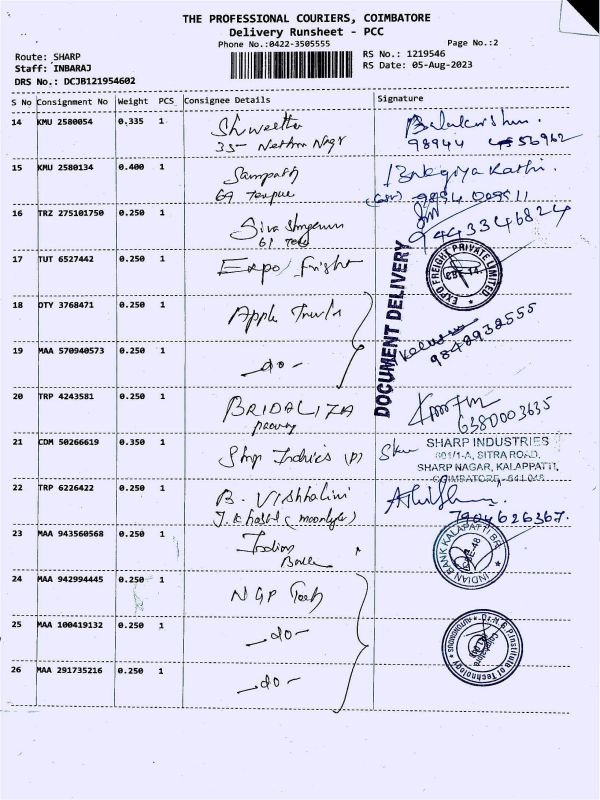 THE PROFESSIONAL COURIERS, COIMBATORE
Delivery Runsheet - PCC
Phone No.:0422-3505555
Page No.:2
Route: SHARP
RS No.: 1219546
Staff: INBARAJ
RS Date: 05-Aug-2023
DRS No.: DCJB121954602
S No Consignment No Weight PCS Consignee Details Signature
14 KMU 2580054 0.335 1 Shweetha
35- Nethra Nagr
98944 56962
15 KMU 2580134 0.400 1 Sampath
9894 009511
16 TRZ 275101750 0.250 1
9443346824
17 TUT 6527442 0.250 1 Expo fright
EXPO FREIGHT PRIVATE LIMITED
CBE-14.
DOCUMENT DELIVERY
18 DTY 3768471 0.250 1 Apple
9842932555
19 MAA 570940573 0.250 1 -do-
20 TRP 4243581 0.250 1 BRIDALIZA
6380003635
21 CDM 50266619 0.350 1
SHARP INDUSTRIES
801/1-A, SITRA ROAD,
SHARP NAGAR, KALAPPATTI,
COIMBATORE - 641 048
22 TRP 6226422 0.250 1 B. Vishhalini
7904626367.
23 MAA 943560568 0.250 1 Indian
Bank
INDIAN BANK KALAPATTI BR
CBE-48
24 MAA 942994445 0.250 1 NGP Tech
25 MAA 100419132 0.250 1 -do-
Dr.N.G.P.Institute of Technology
AUTONOMOUS
26 MAA 291735216 0.250 1 -do-